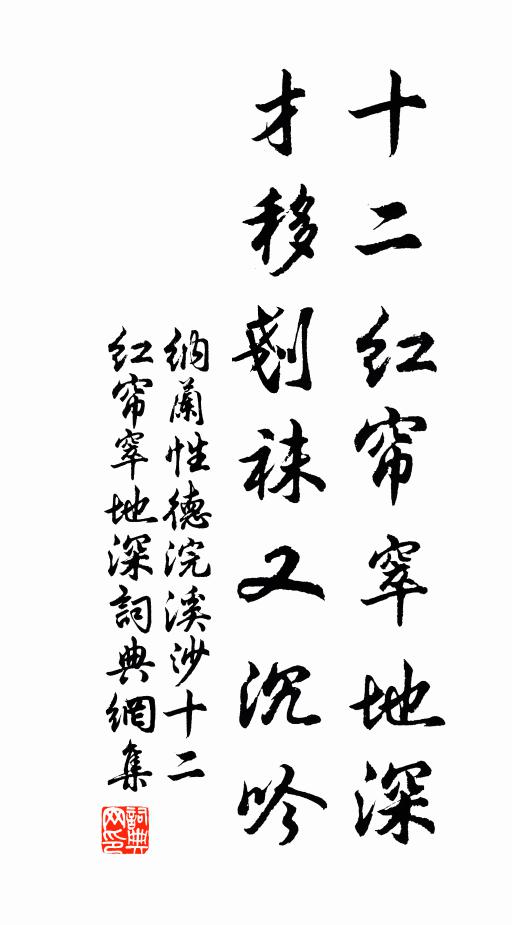 十二红帘窣地深
才移刬袜又沉吟
纳蘭性德浣溪沙十二
红帘窣地深詞典網集
詞典网印